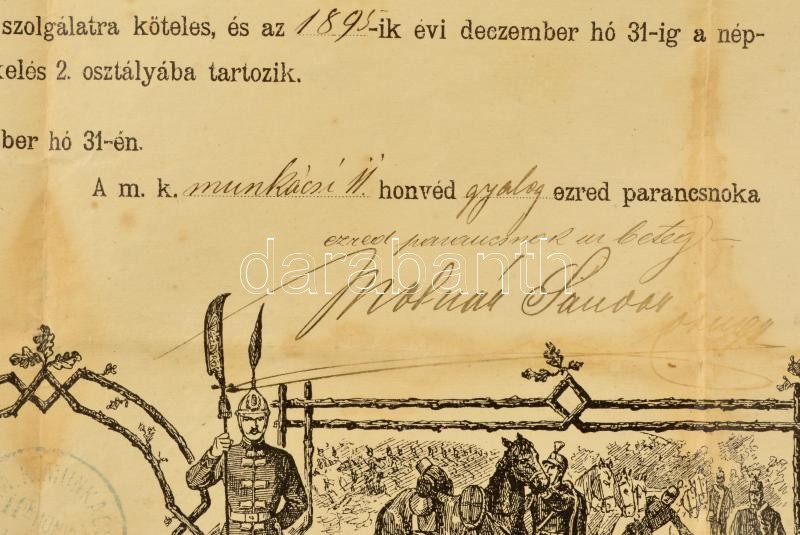 szolgálatra köteles, és az 1895-ik évi deczember hó 31-ig a nép-
kelés 2. osztályába tartozik.
ber hó 31-én.
A m. k. munkácsi 11. honvéd gyalog ezred parancsnoka
ezred parancsnok ur beteg
darabanth
Molnár Sándor